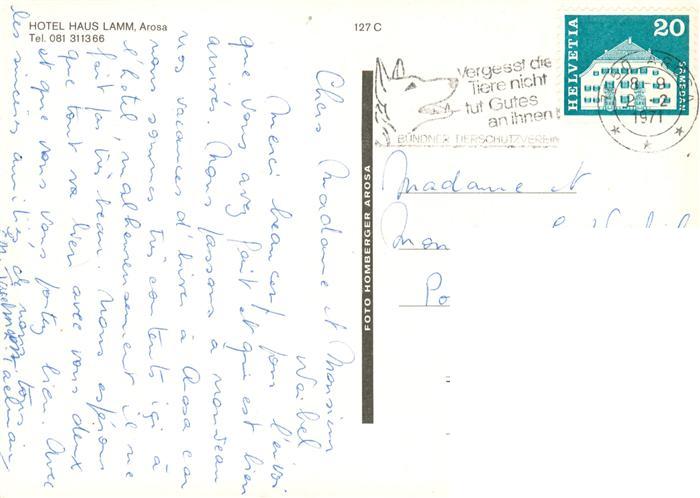 HOTEL HAUS LAMM, Arosa
Tel. 081 311366
127 C
Vergesst die
Tiere nicht
tut Gutes
an ihnen!
BÜNDNER TIERSCHUTZVEREIN
HELVETIA
20
SAMEDAN
1971
FOTO HOMBERGER AROSA
Chers Madame et Monsieur
Waibel
Merci beaucoup pour l'envoi
que vous avez fait et qui est bien
arrivé. Nous passons à nouveau
nos vacances d'hiver à Arosa car
nous sommes très contents ici à
l'hôtel, malheureusement il ne
fait pas très beau. Nous espérons
que tout va bien avec vous deux
et que vous vous portez bien. Avec
les sincères amitiés de nous tous
Madame et
Mon